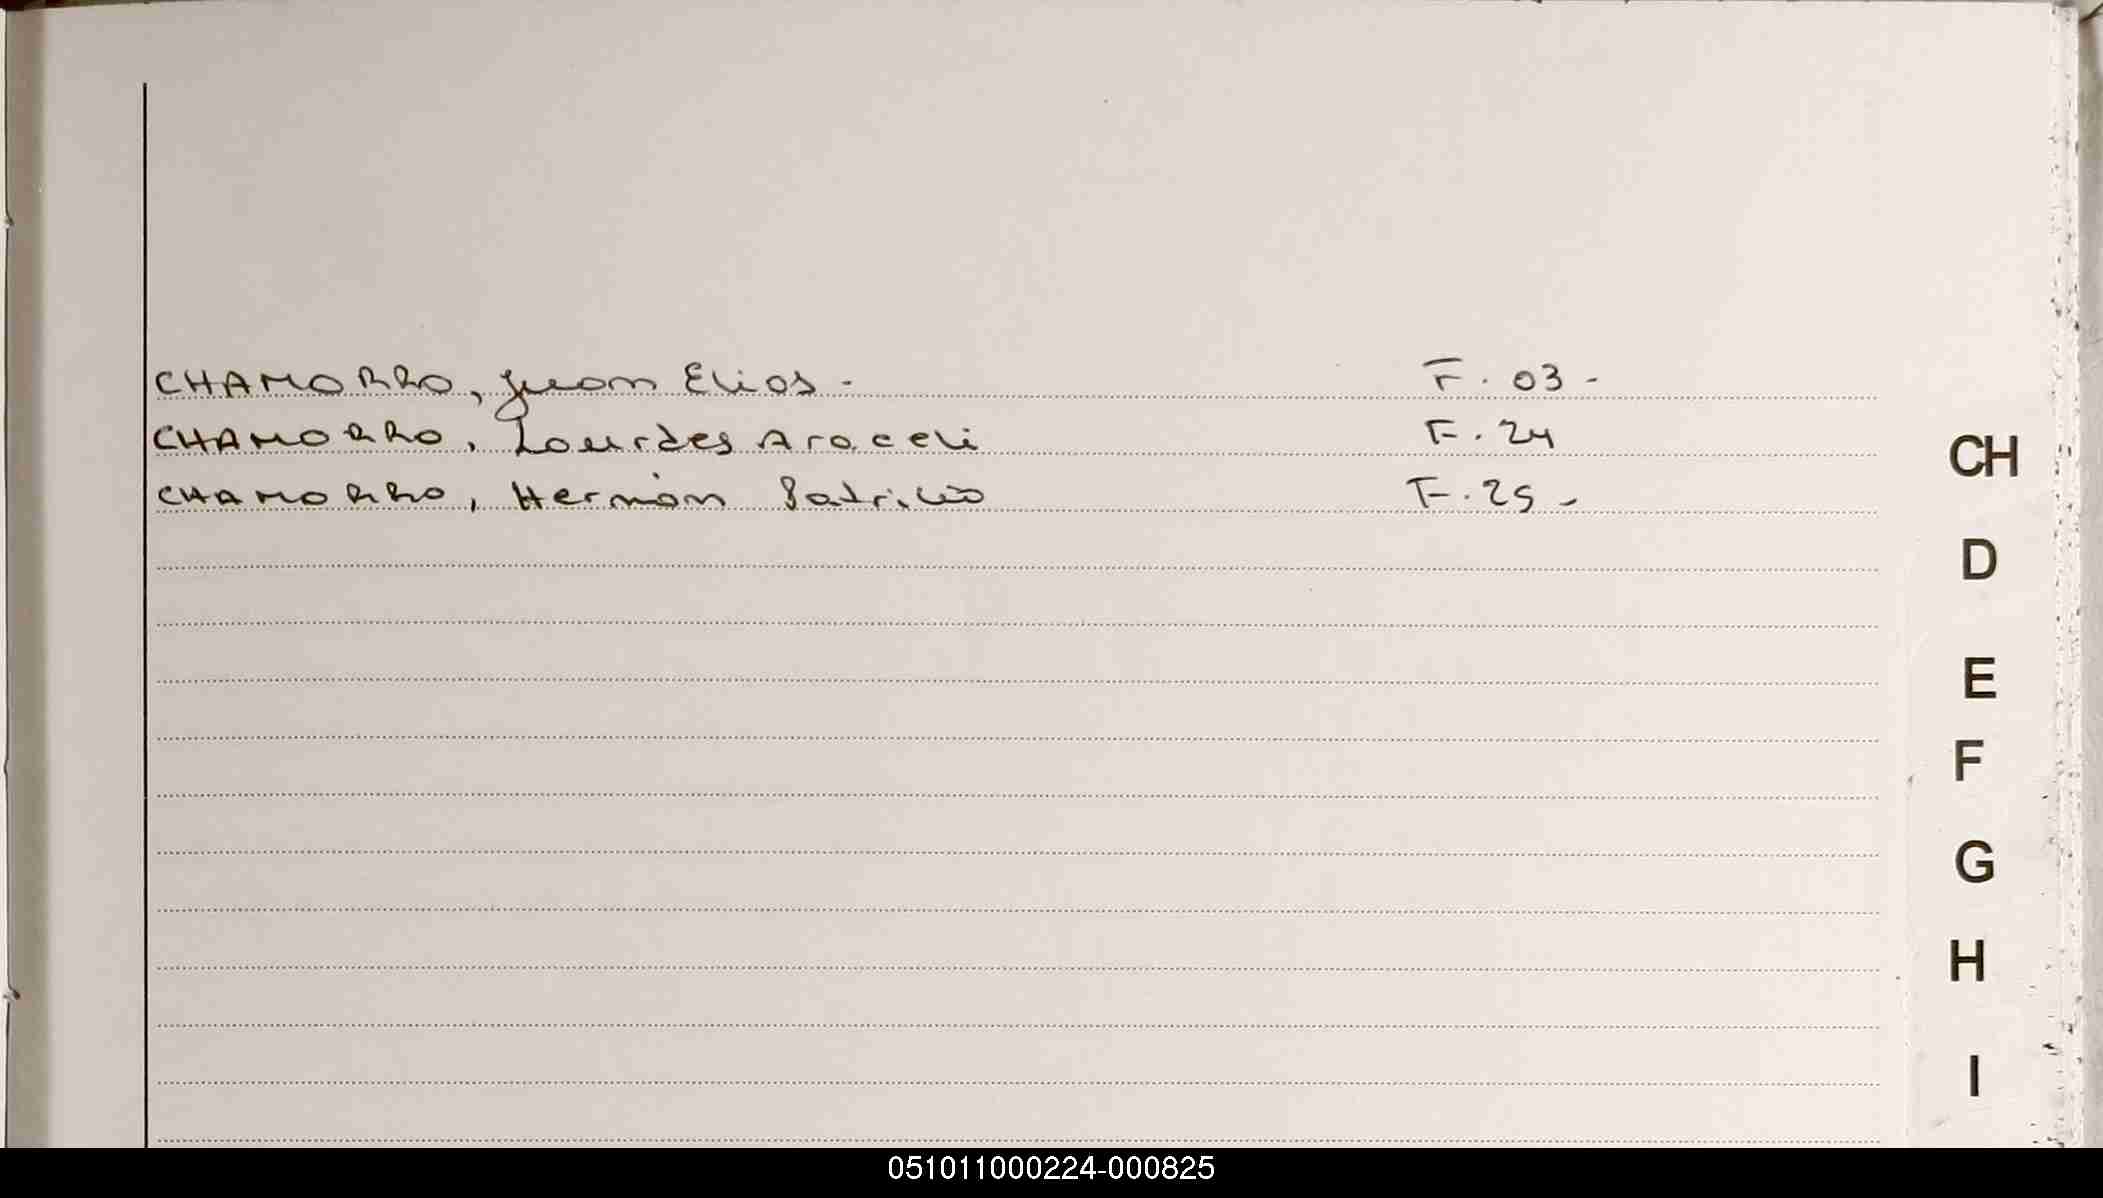 CHAMORRO, Juan Elias - F. 03 -
CHAMORRO, Lourdes Araceli F. 24
CHAMORRO, Hernán Patricio F. 25 -
CH
D
E
F
G
H
I
051011000224-000825